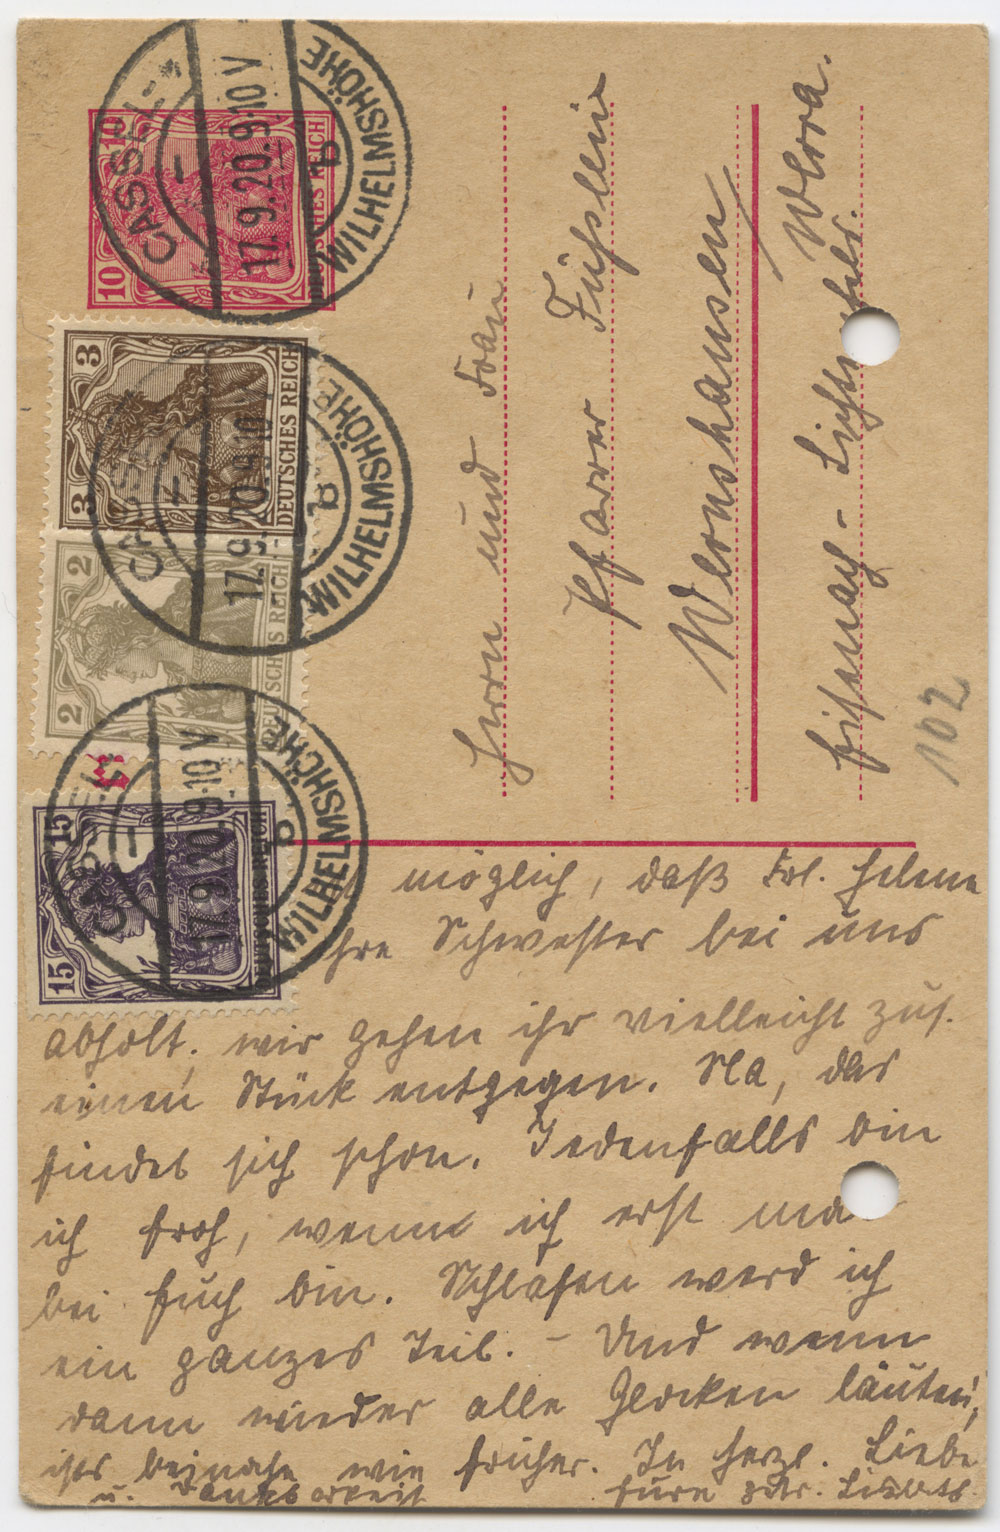 CASSEL-
WILHELMSHÖHE
17.9.20.9-10V
b
10 10
DEUTSCHES REICH
CASSEL-
WILHELMSHÖHE
17.9.20.9-10V
b
3 3
DEUTSCHES REICH
2 2
DEUTSCHES REICH
CASSEL-
WILHELMSHÖHE
17.9.20.9-10V
b
15 15
DEUTSCHES REICH
Herrn und Frau
Pfarrer Füßlein
Wernshausen
Werra.
Eisenach - Lichtenfels.
102
möglich, daß Frl. Helene
ihre Schwester bei uns
abholt; wir gehen ihr vielleicht zus.
einen Stück entgegen. Na, das
findet sich schon. Jedenfalls bin
ich froh, wenn ich erst mal
bei Euch bin. Schlafen werd ich
ein ganzes Teil. – Und wenn
dann wieder alle Glocken läuten,
ists beinahe wie früher. In herzl. Liebe
u. Dankbarkeit Eure